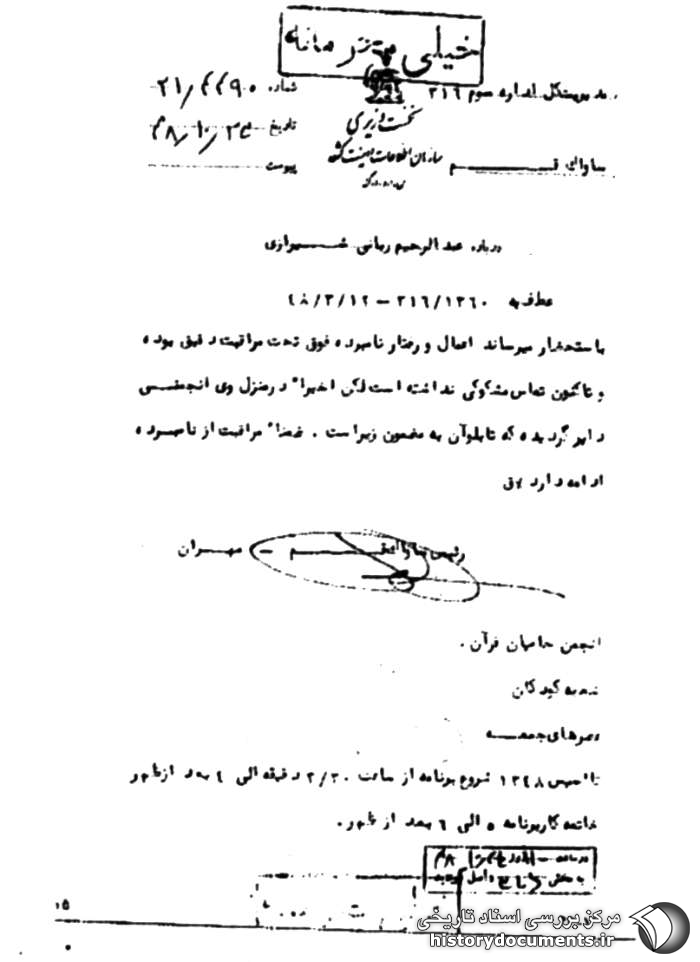 خیلی محرمانه
مدیریت کل اداره سوم ۳۱۶
شماره ۲۱/۴۴۹۰
نخست وزیری
تاریخ
سازمان اطلاعات و امنیت کشور
ساواک قم
پیوست
درباره عبدالرحیم ربانی شیرازی
عطف به ۳۱۶/۱۲۶۰ – ۴۸/۳/۱۲
باستحضار میرساند اعمال و رفتار نامبرده فوق تحت مراقبت دقیق بوده
و تاکنون تماس مشکوکی نداشته است لکن اخیراً در منزل وی انجمنی
دایر گردیده که تابلو آن به مضمون زیر است . ضمناً مراقبت از نامبرده
ادامه دارد
رئیس ساواک قم – مهران
انجمن حامیان قرآن .
شعبه کودکان
عصرهای جمعه
تاسیس ۱۳۴۸ شروع برنامه از ساعت ۲/۳۰ دقیقه الی ٤ بعد ازظهر
خاتمه کار برنامه ۵ الی ٦ بعد از ظهر .
به بخش واصل گردید
۱۵
مرکز بررسی اسناد تاریخی
historydocuments.ir